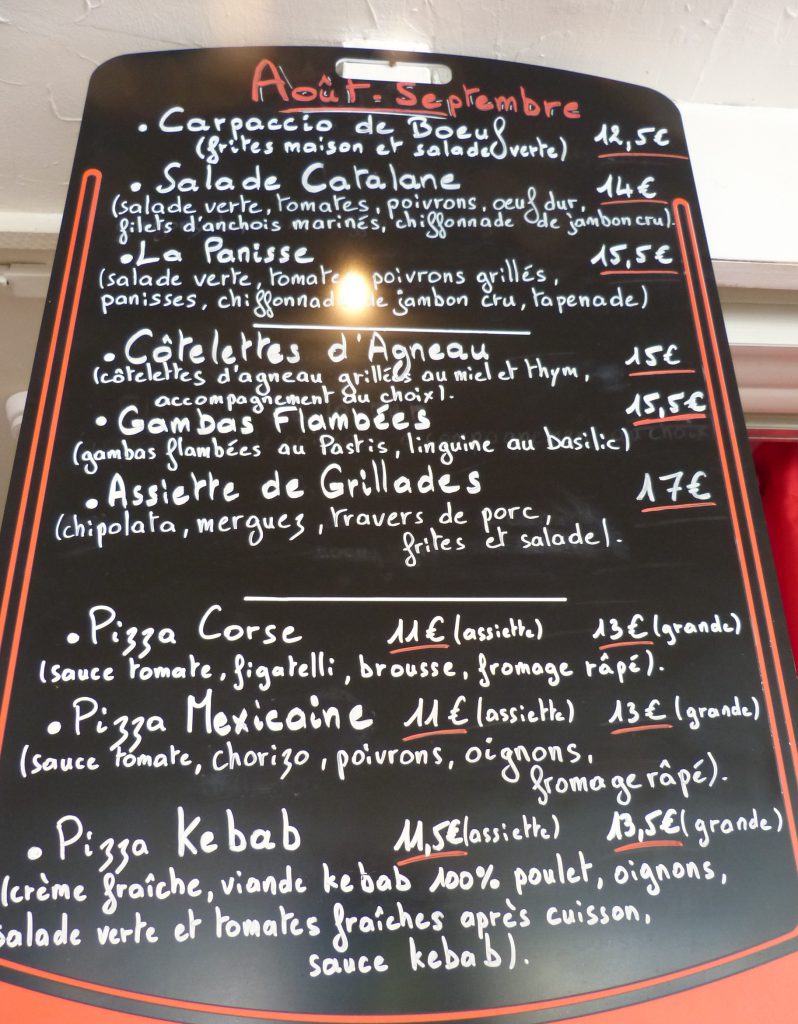 Août - Septembre
• Carpaccio de Boeuf 12,5€
(frites maison et salade verte)
• Salade Catalane 14€
(salade verte, tomates, poivrons, oeuf dur,
filets d'anchois marinés, chiffonnade de jambon cru).
• La Panisse 15,5€
(salade verte, tomate poivrons grillés,
panisses, chiffonnade de jambon cru, tapenade)
• Côtelettes d'Agneau 15€
(côtelettes d'agneau grillées au miel et thym,
accompagnement au choix).
• Gambas Flambées 15,5€
(gambas flambées au Pastis, linguine au basilic)
• Assiette de Grillades 17€
(chipolata, merguez, travers de porc,
frites et salade).
• Pizza Corse 11€ (assiette) 13€ (grande)
(sauce tomate, figatelli, brousse, fromage râpé).
• Pizza Mexicaine 11€ (assiette) 13€ (grande)
(sauce tomate, chorizo, poivrons, oignons,
fromage râpé).
• Pizza Kebab 11,5€ (assiette) 13,5€ (grande)
(crème fraîche, viande kebab 100% poulet, oignons,
salade verte et tomates fraîches après cuisson,
sauce kebab).